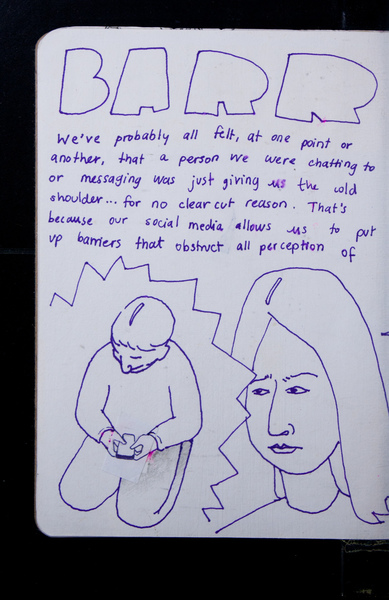 BARR
We've probably all felt, at one point or
another, that a person we were chatting to
or messaging was just giving us the cold
shoulder... for no clear cut reason. That's
because our social media allows us to put
up barriers that obstruct all perception of